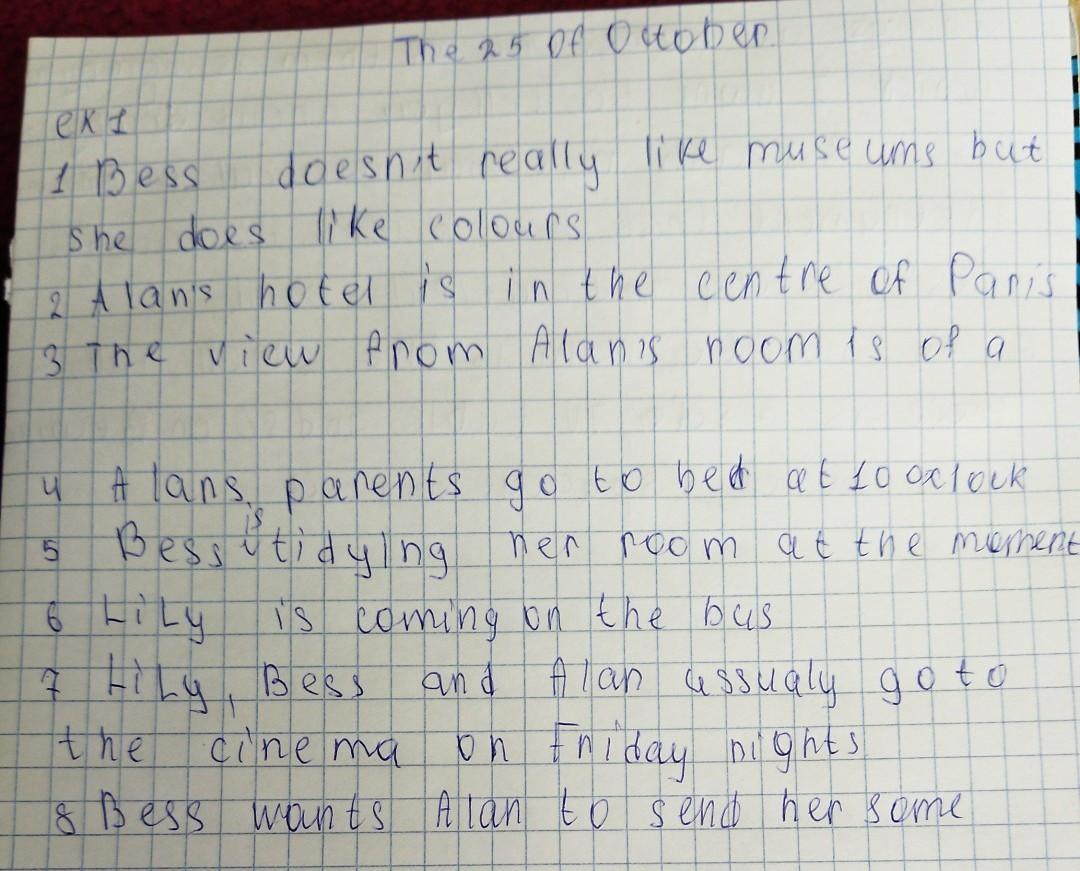 The 25 Of October
ex 1
1 Bess doesn't really like museums but
she does like colours
2 Alan's hotel is in the centre of Paris
3 The view from Alan's room is of a
4 Alans parents go to bed at 10 oclock
is
5 Bess tidying her room at the moment
6 Lily is coming on the bus
7 Lily, Bess and Alan ussualy go to
the cinema on Friday nights
8 Bess wants Alan to send her some